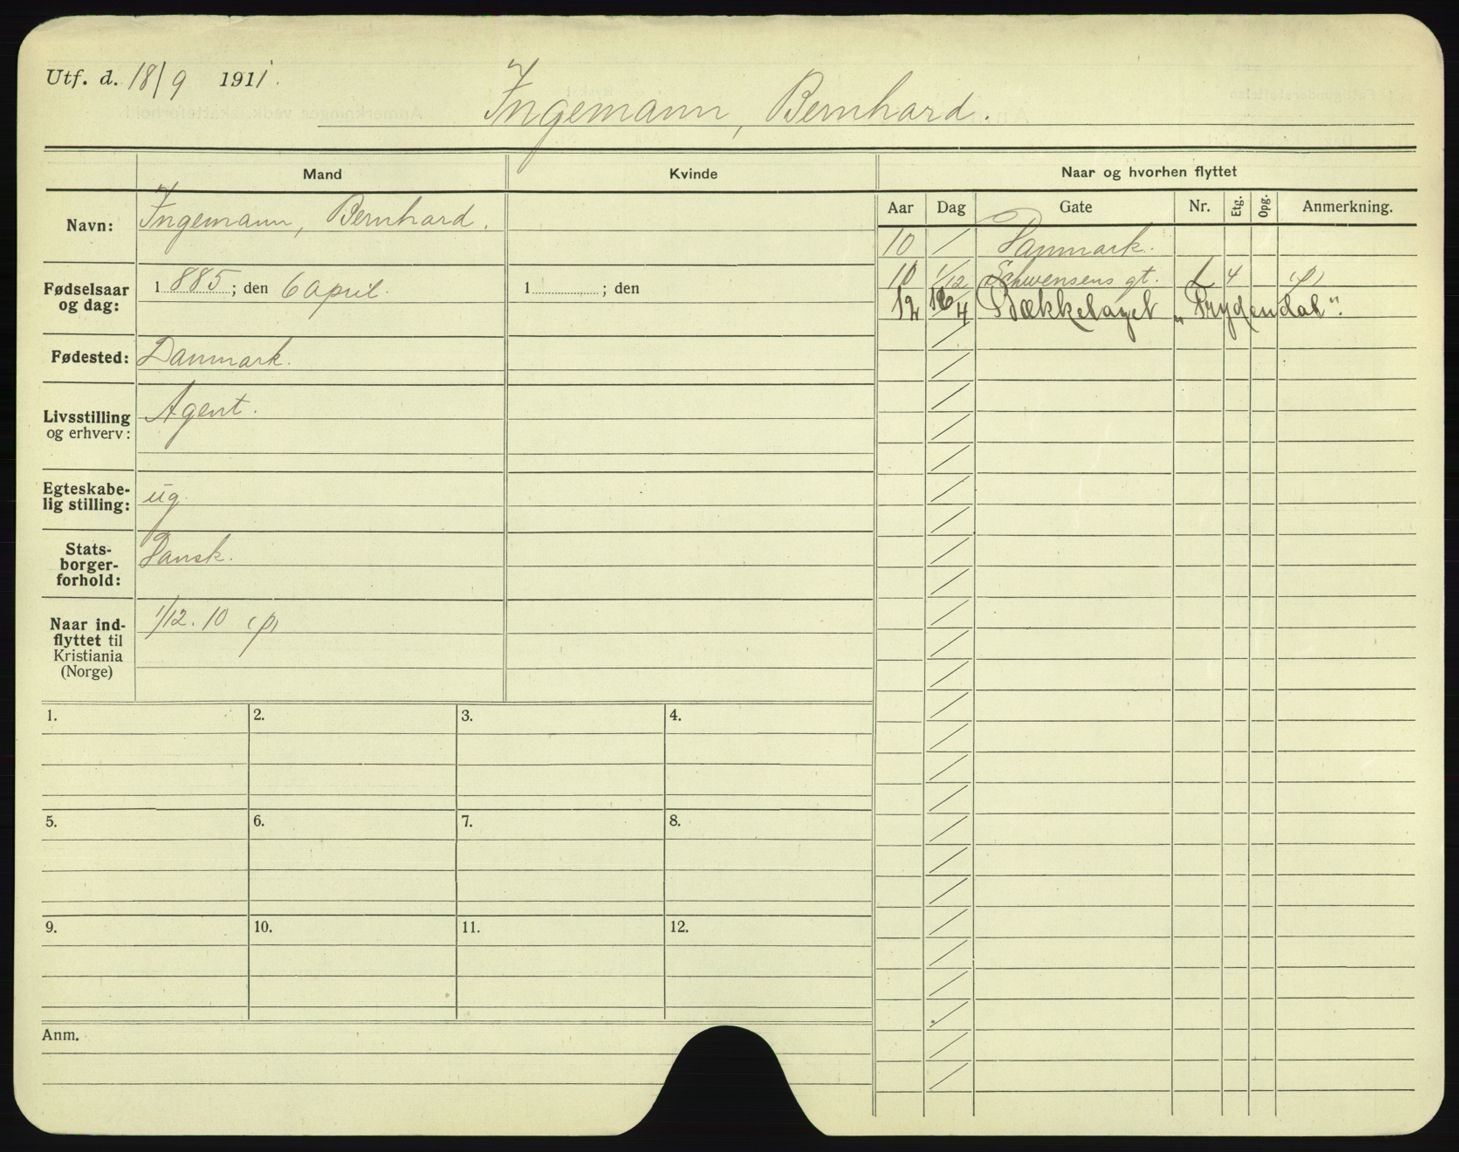 Utf. d. 18/9 1911.
Ingemann, Bernhard.
Mand Kvinde Naar og hvorhen flyttet
Navn: Ingemann, Bernhard.
Aar Dag Gate Nr. Etg. Opg. Anmerkning.
10 / Danmark.
Fødselsaar og dag: 1885; den 6 April. 1 ; den
10 1/12 Schwensens gt. 4 (p)
12 16/4 Bækkelaget „Frydendal“.
Fødested: Danmark.
Livsstilling og erhverv: Agent.
Egteskabe-
lig stilling: ug.
Stats-
borger-
forhold: Dansk.
Naar ind-
flyttet til
Kristiania
(Norge)
1/12. 10 (p)
1. 2. 3. 4.
5. 6. 7. 8.
9. 10. 11. 12.
Anm.